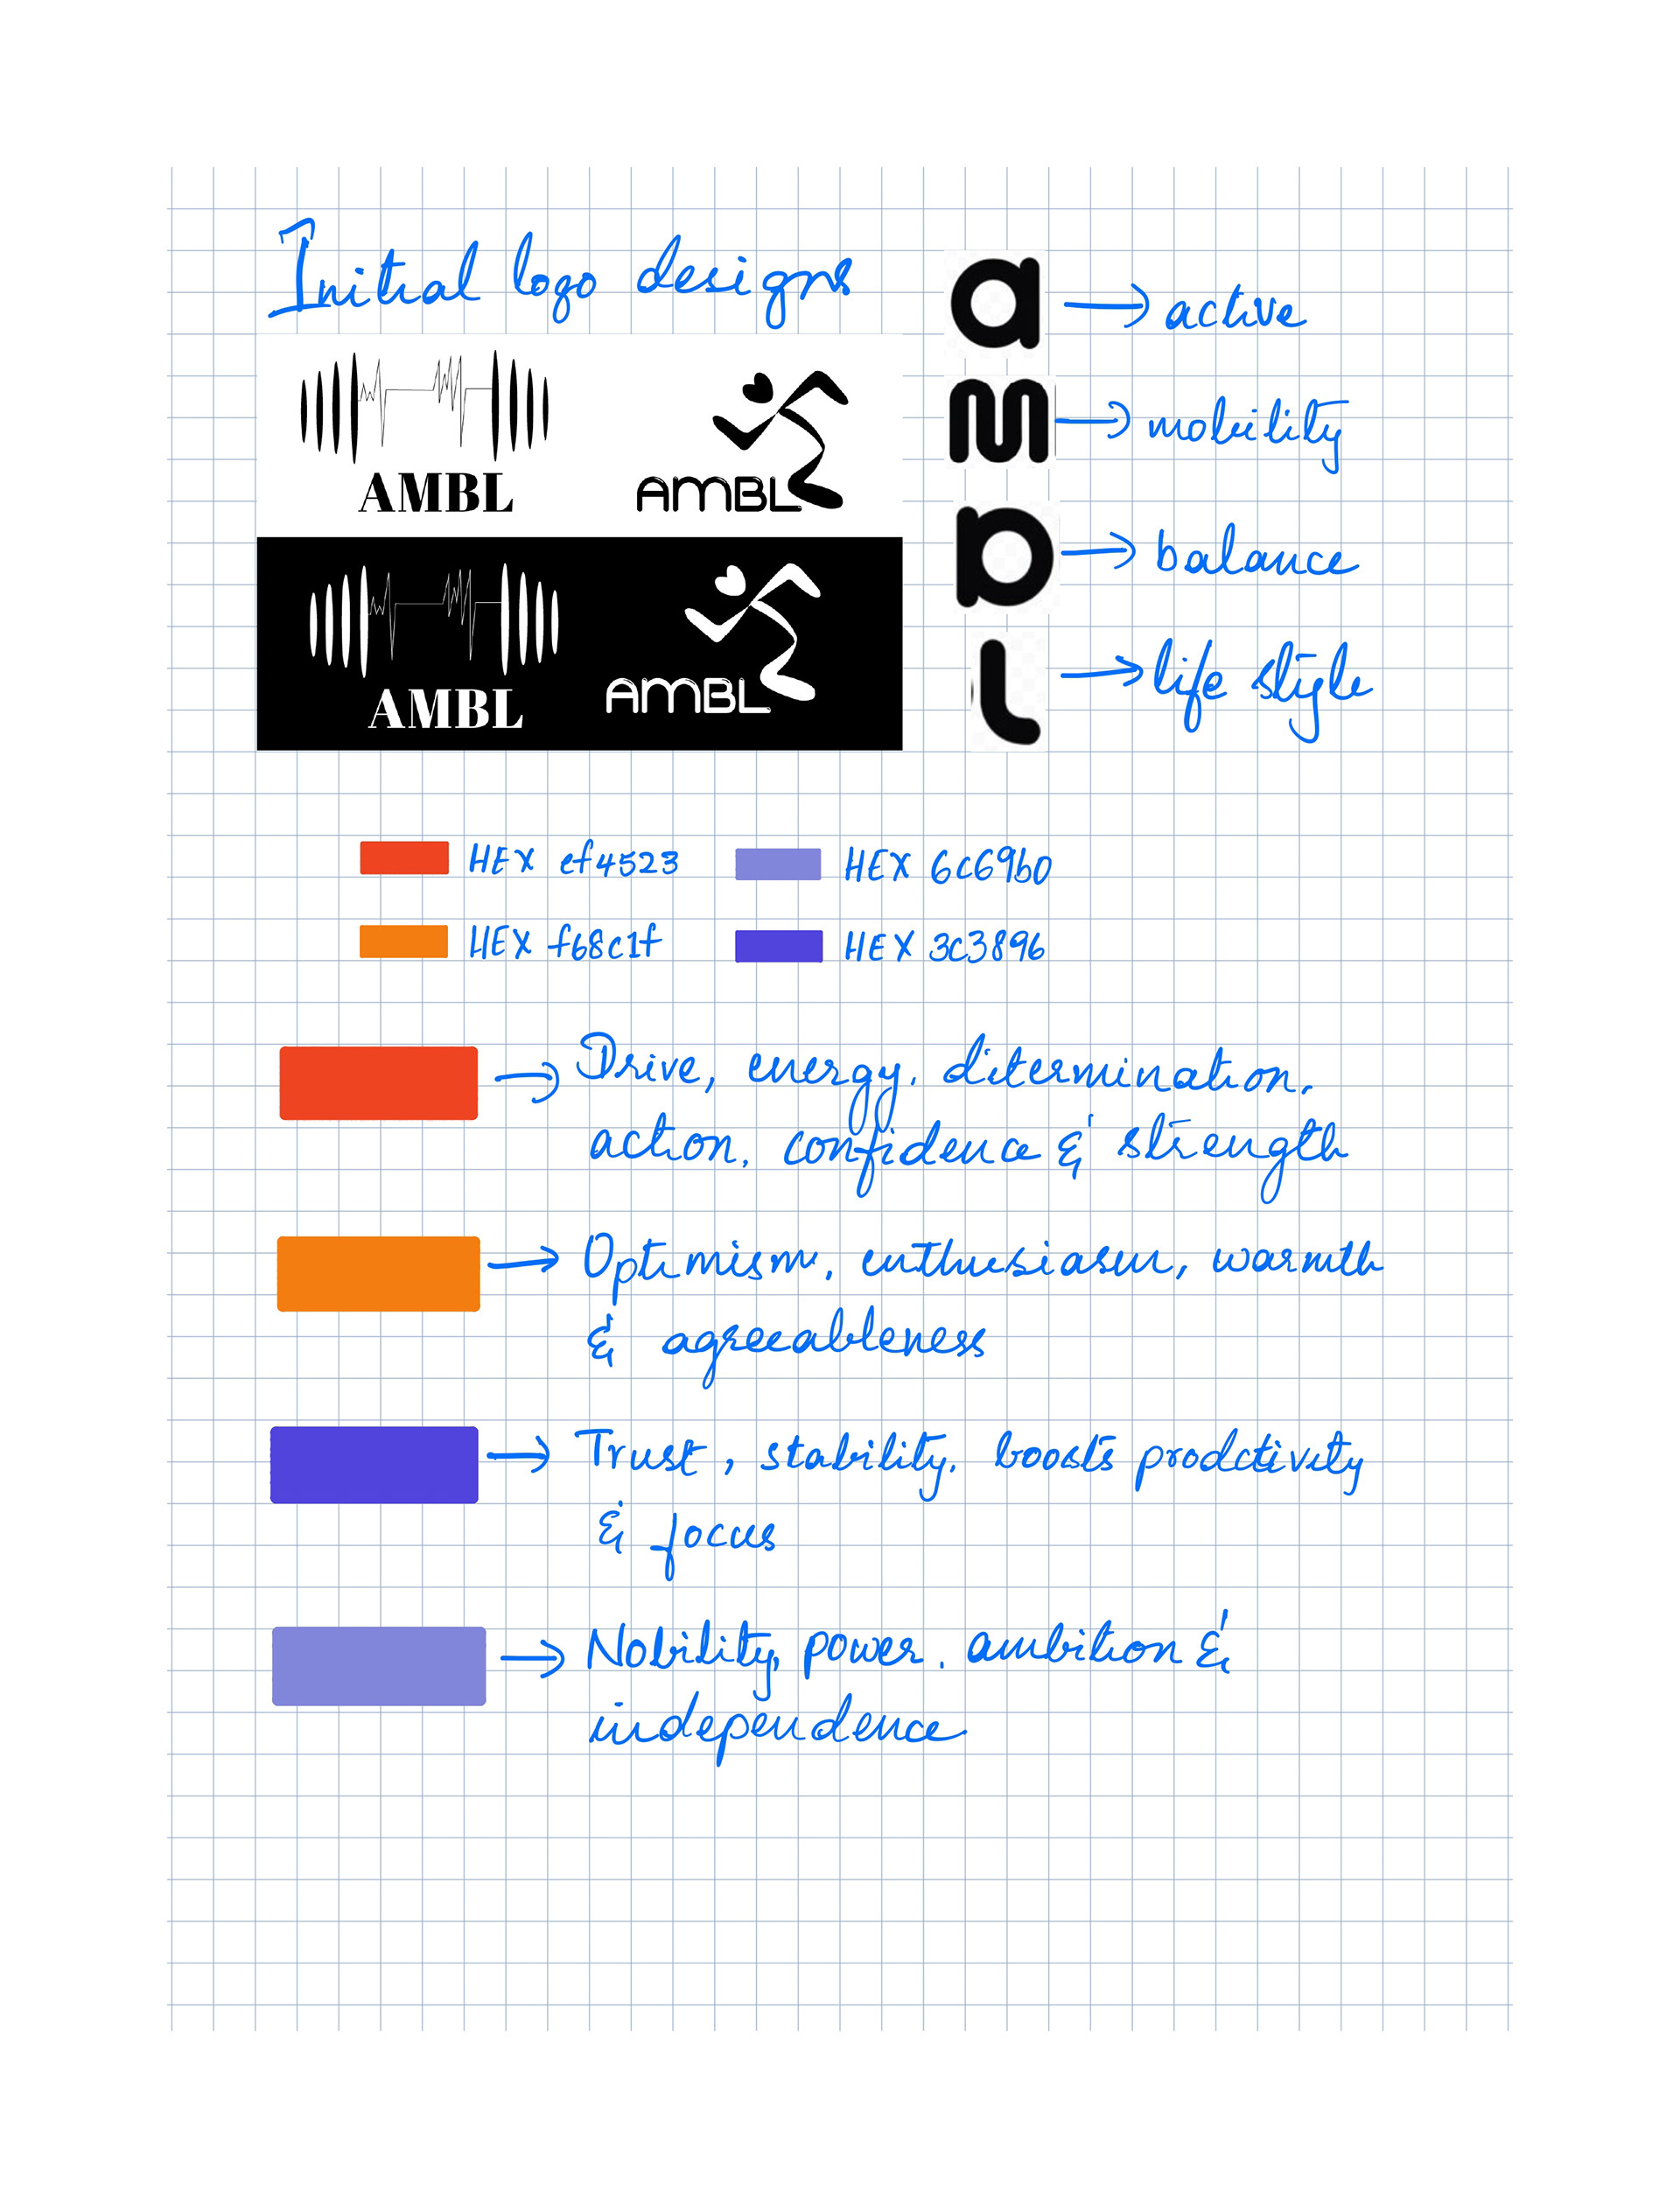 Initial logo designs
a → active
AMBL
AMBL
m → mobility
b → balance
AMBL
AMBL
l → life style
HEX ef4523
HEX 6c69b0
HEX f68c1f
HEX 3c3896
→ Drive, energy, ditermination,
action, confidence & strength
→ Optimism, enthusiasm, warmth
& agreeableness
→ Trust, stability, boosts prodctivity
& focus
→ Nobility, power, ambition &
independence